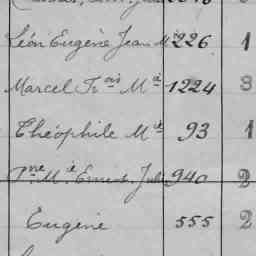 Léon Eugène Jean M ie 226 1
Marcel Fr ois M ie 1224 3
Théophile M ie 93 1
P re M ie Ernest Jul 940 2
Eugène 555 2